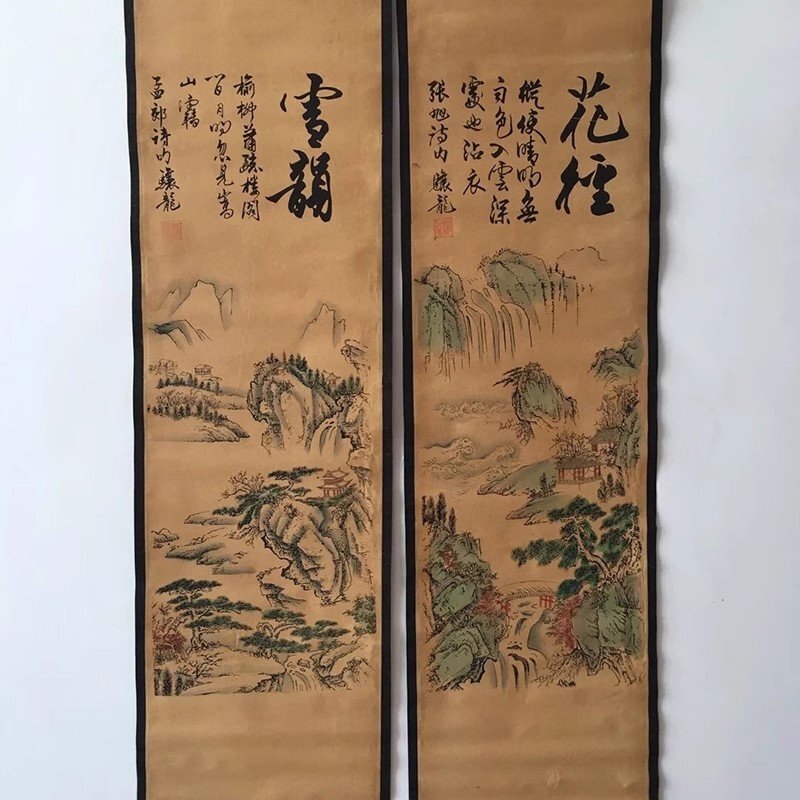 花徑
縱使晴明無
雨色入雲深
處也沾衣
張旭詩句 驤龍
雪韻
榆柳蕭疏樓閣
月明忽見嵩
山
孟郊詩句 驤龍